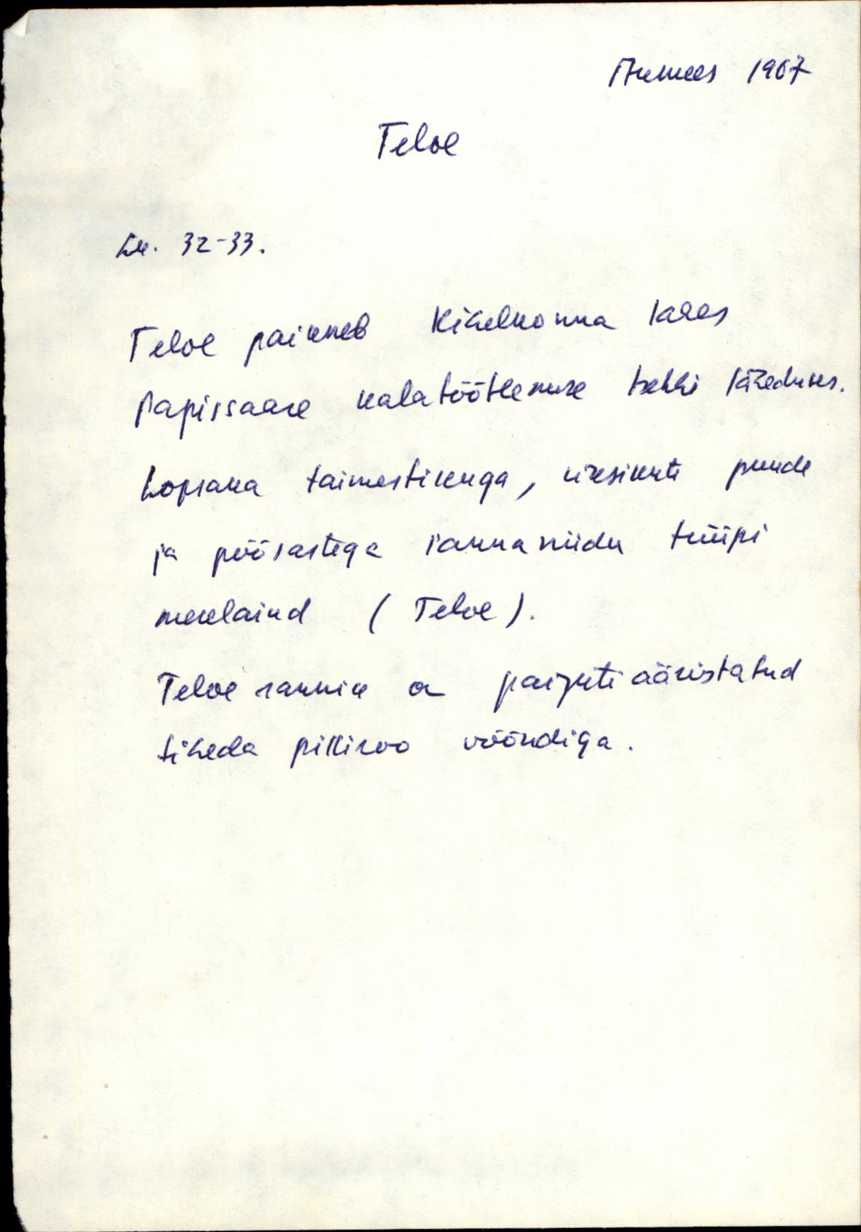 Aumees 1967
Teloe
Lk. 32-33.
Teloe paikneb Kihelkonna lahes
Papissaare kalatöötlemise tsehhi läheduses.
Lopsaka taimestikuga, üksikute puude
ja põõsastega rannaniidu tüüpi
merelaiud (Teloe).
Teloe rannik on paiguti ääristatud
tiheda pilliroo vööndiga.